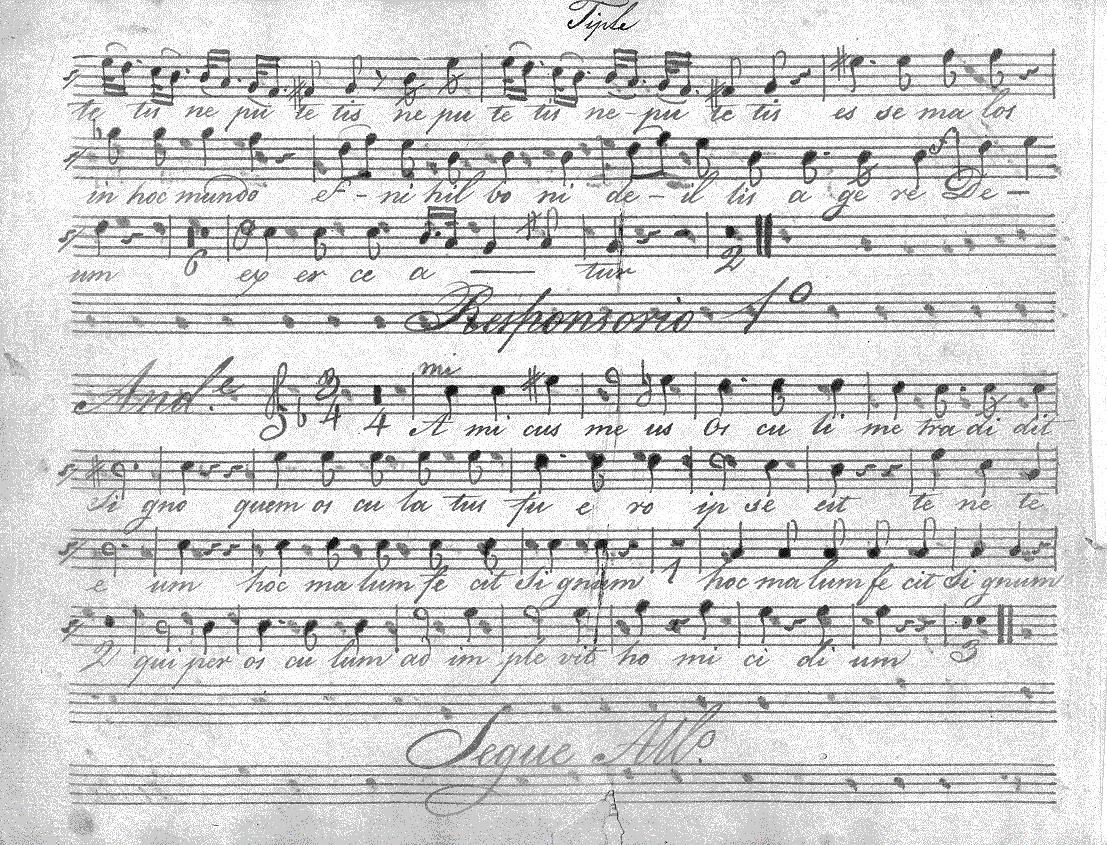 Tiple
te tis ne pu te tis ne pu te tis ne - pu te tis es se ma los
in hoc mundo et - ni hil bo ni de - il lis a ge re De -
um 6 ex er ce a — tur 2
Responsorio 1º
And.e 3 4 4 mi
A mi cus me us Os cu li me tra di dit
Si gno quem os cu la tus fu e ro ip se est te ne te
e um hoc ma lum fe cit Si gnum 1 hoc ma lum fe cit Si gnum
2 qui per os cu lum ad im ple vit ho mi ci di um 3
Segue All.o